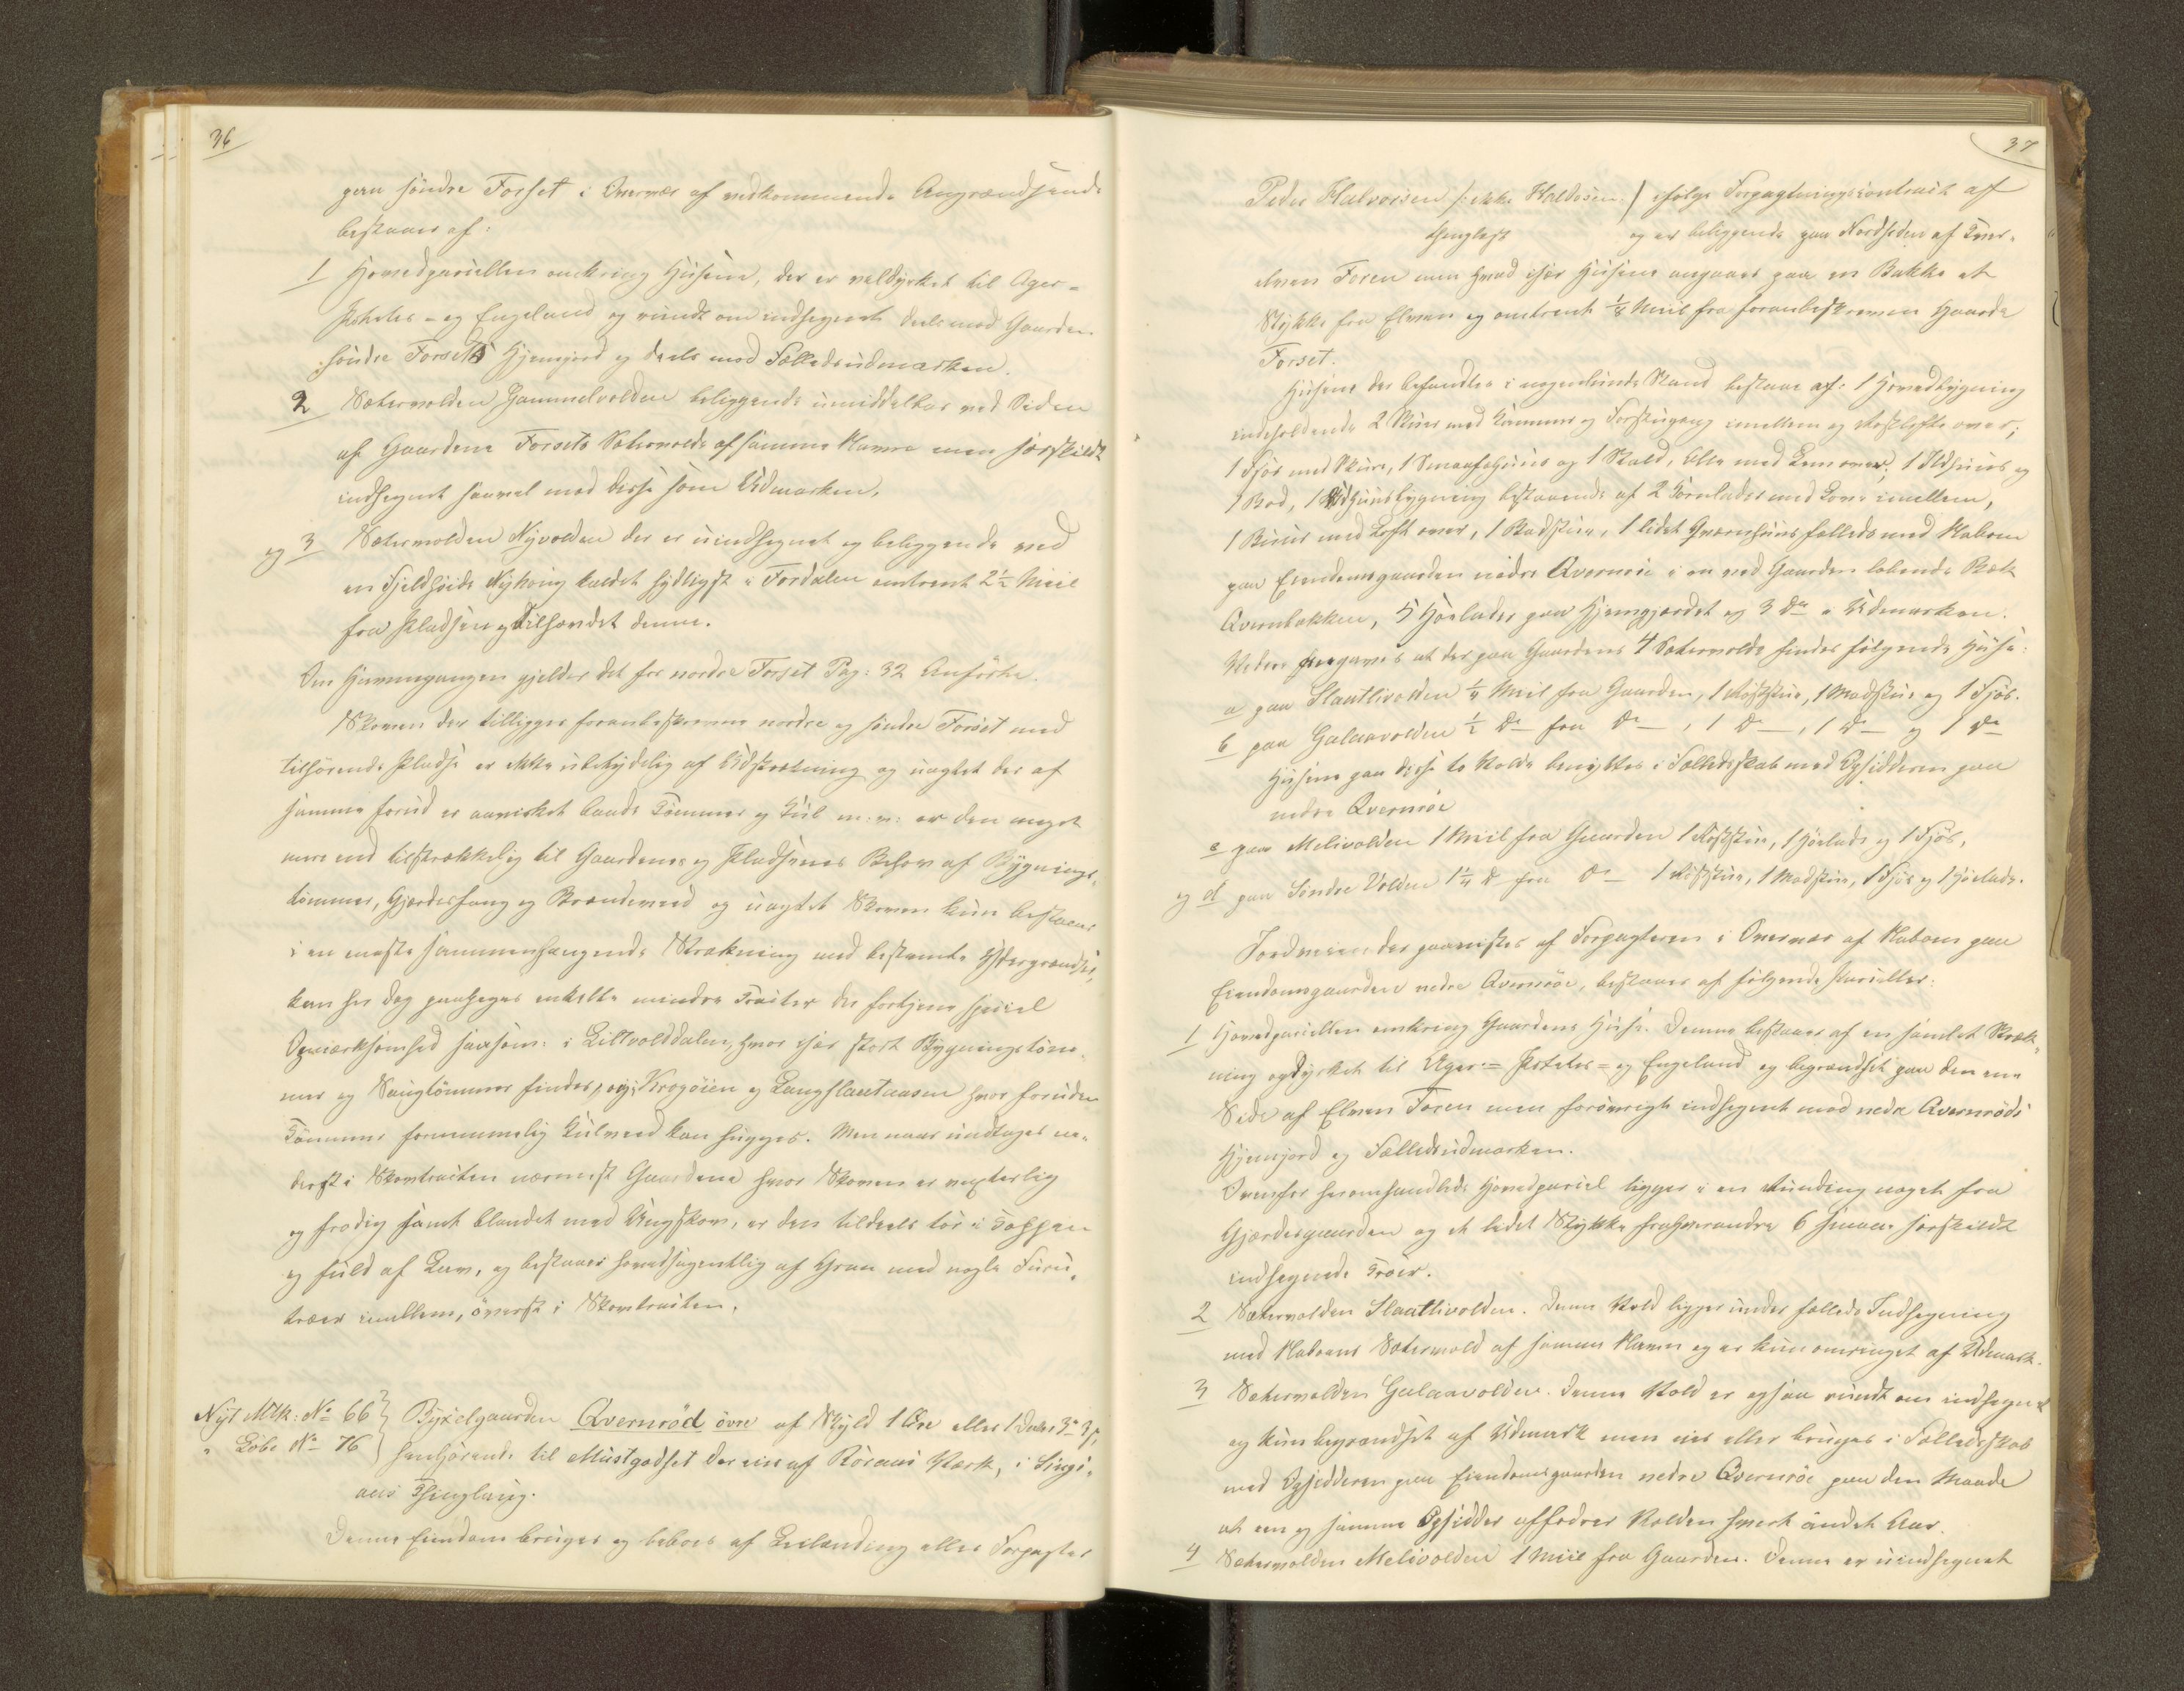 36
paa söndre Forset i Overvær af vedkommende Angrændsende
bestaaer af:
1 Hovedparcellen omkring Husene, der er veldyrket til Ager-
Potetes- og Engeland og rundt om indhegnet deels mod Gaarden
söndre Forsets Hjemjord og deels mod Fælledsudmarken.
2 Sætervolden Gammelvolden beliggende umiddelbar ved Siden
af Gaardene Forsets Sætervolde af samme Navn men særskildt
indhegnet saavel mod disse som Udmarken,
og 3 Sætervolden Nyvolden der er uindhegnet og beliggende ved
en Fjeldhöide Nyhöug kaldet sydligst i Fordalen omtrent 2½ Miil
fra Pladsen og tilhørdet denne.
Om Havnegangen gjelder det for nordre Forset Pag: 32 Anførte.
Skoven der tilligger foranbeskrevne nordre og søndre Forset med
tilhørende Pladse er ikke ubetydelig af Udstrækning og uagtet der af
samme forud er avvirket baade Tömmer og Kul m: v: er den meget
mere end tilstrækkelig til Gaardenes og Pladsenes Behov af Bygnings-
tömmer, Gjerdesfang og Brændeved og uagtet Skoven kun bestaaer
i en næsten sammenhængende Strækning med bestemte Ydergrændser,
kan her dog paapeges enkelte mindre Trakter der fortjene speciel
Opmærksomhed saasom: i Liltvolddalen, hvor især stort Bygningstöm-
mer og Saugtömmer findes, og i Krogöien og Langslaataasen hvor foruden
Tömmer fornemmelig Kulved kan hugges. Men naar undtages ne-
derst i Skovtrakten nærmest Gaardene hvor Skoven er voxterlig
og frodig samt blandet med Ungskov, er den tildeels tör i Toppen
og fuld af Lav, og bestaaer hovedsagentlig af Gran med nogle Furu-
træer imellem, överst i Skovtrakten.
Nyt Mtk: No 66 } Byxelgaarden Qvernröd övre af Skyld 1 Öre eller 1 Daler
" Löbe No 76 } henhörende til Mustgodset der eies af Röraas Værk, i Sings-
aas Thinglaug.
Denne Eiendom bruges og beboes af Leilænding eller Forpagter
37
Peder Halvorsen /: ikke Haldosen :/ ifølge Forpagtningscontrakt af
thinglæst og er beliggende paa Nordsiden af Tver-
elven Foren men hvad især Husene angaaer paa en Bakke et
Stykke fra Elven og omtrent ¼ Miil fra foranbeskrevne Gaarde
Forset.
Husene der befandtes i nogenlunde Stand bestaae af: 1 Hovedbygning
indeholdende 2 Stuer med Kammer og Forstugang imellem og Loft over;
1 Fjös med Skur, 1 Smaafæhuus og 1 Stald, alle med Lem over, 1 Ildhuus og
1 Bod, 1 Udhuusbygning bestaaende af 2 Kornlader med Love imellem,
1 Buur med Loft over, 1 Badstue, 1 lidet Qvernhuus fælleds med Naboen
paa Eiendomsgaarden nedre Qvernröe i en ved Gaarden løbende Bæk
Qvernbækken, 5 Höelader paa Hjemgjærdet og 3 do i Udmarken.
Videre opgaves at der paa Gaardens 4 Sætervolde findes følgende Huse:
a paa Slaatlivolden ¼ Miil fra Gaarden, 1 Madstue og 1 Fjös.
b paa Galaavolden ½ do fra do , 1 do , 1 do og 1 do
Husene paa disse to Volde benyttes i Fælledsskab med Opsidderen paa
nedre Qvernröe
c paa Melivolden 1 Miil fra Gaarden 1 Höelade og 1 Fjös,
og d paa Söndre Volden 1¼ do fra do 1 Madstue, 1 Fjös og 1 Höelade.
Jordveien der paavistes af Forpagteren i Overvær af Naboen paa
Eiendomsgaarden nedre Qvernröe, bestaaer af følgende Parceller:
1 Hovedparcellen omkring Gaardens Huse. Denne bestaaer af en samlet Stræk-
ning opdyrket til Ager- Potetes- og Engeland og begrændset paa den ene
Side af Elven Foren men forövrigt indhegnet mod nedre Qvernröds
Hjemjord og Fælledsudmarken.
Ovenfor heromhandlede Hovedparcel ligger i en Runding noget fra
Gjærdesgaarden og et lidet Stykke fra hverandre 6 smaae særskildt
indhegnede Tröer.
2 Sætervolden Slaatlivolden. Denne Vold ligger under fælleds Indhegning
med Naboens Sætervold af samme Navn og er kun omringet af Udmark.
3 Sætervolden Galaavolden. Denne Vold er ogsaa rundt om indhegnet
og kun begrændset af Udmark men eies eller bruges i Fælledsskab
med Opsidderen paa Eiendomsgaarden nedre Qvernröe paa den Maade
at een og samme Opsidder affodrer Volden hvert andet Aar.
4 Sætervolden Melivolden 1 Miil fra Gaarden. Denne er uindhegnet